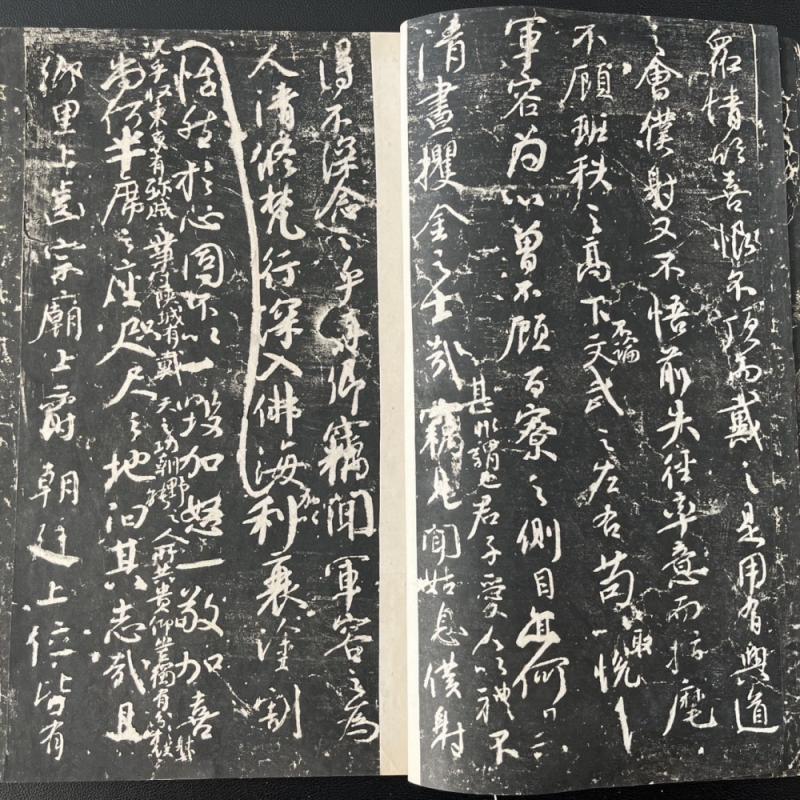 眾情欣喜恨不頂而戴之是用有興道
之會僕射又不悟前失徑率意而指麾
不顧班秩之高下不論文武之左右苟取悅
軍容為心曾不顧百寮之側目亦何異
清晝攫金之士哉甚非謂也君子愛人以禮不竊見聞姑息僕射
得不深念之乎真卿竊聞軍容之為
人清修梵行深入佛海加以利衰塗割
恬然於心固不以一毀加怒一敬加喜
況乎收東京有殄賊之業守陝城有戴天之功朝野之人所共貴仰豈獨有分於僕射哉
尚何半席之座咫尺之地汩其志哉且
鄉里上齒宗廟上爵朝廷上位皆有